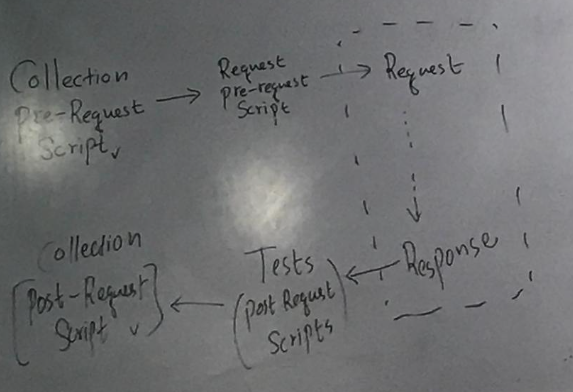 Collection
Pre-Request
Script
Request
Pre-request
Script
Request
Response
Tests
(Post Requst
Scripts)
Collection
[Post-Request
Script]